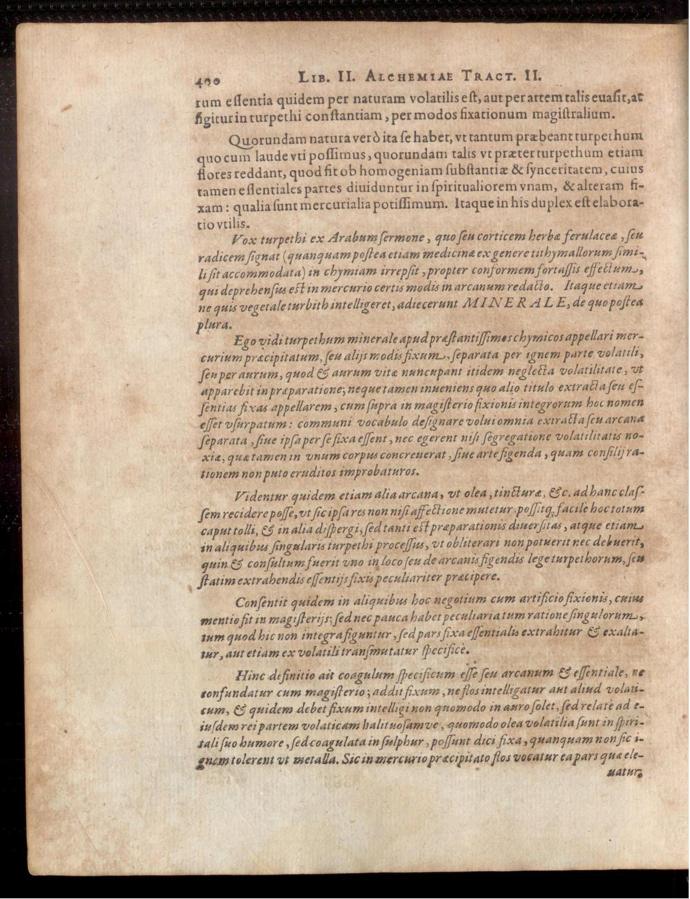 400 LIB. II. ALCHEMIAE TRACT. II.
tum essentia quidem per naturam volatilis est, aut per artem talis euasit, at
figitur in turpethi constantiam, per modos fixationum magistralium.
Quorundam natura verò ita se habet, vt tantum præbeant turpethum
quo cum laude vti possimus, quorundam talis vt præter turpethum etiam
flores reddant, quod fit ob homogeniam substantiæ & synceritatem, cuius
tamen essentiales partes diuiduntur in spiritualiorem vnam, & alteram fi-
xam: qualia sunt mercurialia potissimum. Itaque in his duplex est elabora-
tio vtilis.
Vox turpethi ex Arabum sermone, quo seu corticem herbæ ferulaceæ, seu
radicem signat (quanquam postea etiam medicinæ ex genere tithymallorum simi-
li sit accommodata) in chymiam irrepsit, propter conformem fortassis effectum,
qui deprehensus est in mercurio certis modis in arcanum redacto. Itaque etiam
ne quis vegetale turbith intelligeret, adiecerunt MINERALE, de quo postea
plura.
Ego vidi turpethum minerale apud præstantissimos chymicos appellari mer-
curium præcipitatum, seu alijs modis fixum, separata per ignem parte volatili,
seu per aurum, quod & aurum vitæ nuncupant itidem neglecta volatilitate, vt
apparebit in præparatione; neque tamen inueniens quo alio titulo extracta seu es-
sentias fixas appellarem, cum supra in magisterio fixionis integrorum hoc nomen
esset vsurpatum: communi vocabulo designare volui omnia extracta seu arcana
separata, siue ipsa per se fixa essent, nec egerent nisi segregatione volatilitatis no-
xiæ, quæ tamen in vnum corpus concreuerat, siue arte figenda, quam consilij ra-
tionem non puto eruditos improbaturos.
Videntur quidem etiam alia arcana, vt olea, tincturæ, &c. ad hanc clas-
sem recidere posse, vt sic ipsa res non nisi affectione mutetur possitq; facile hoc totum
caput tolli, & in alia dispergi, sed tanti est præparationis diuersitas, atque etiam
in aliquibus singularis turpethi processus, vt obliterari non potuerit nec debuerit,
quin & consultum fuerit vno in loco seu de arcanis figendis lege turpethorum, seu
statim extrahendis essentijs fixis peculiariter præcipere.
Consentit quidem in aliquibus hoc negotium cum artificio fixionis, cuius
mentio fit in magisterijs: sed nec pauca habet peculiaria tum ratione singulorum,
tum quod hic non integra figuntur, sed pars fixa essentialis extrahitur & exalta-
tur, aut etiam ex volatili transmutatur specificè.
Hinc definitio ait coagulum specificum esse seu arcanum & essentiale, ne
confundatur cum magisterio; addit fixum, ne flos intelligatur aut aliud volati-
cum, & quidem debet fixum intelligi non quomodo in auro solet, sed relate ad e-
iusdem rei partem volaticam halituosamve, quomodo olea volatilia sunt in spiri-
tali suo humore, sed coagulata in sulphur, possunt dici fixa, quanquam non sic i-
gnem tolerent vt metalla. Sic in mercurio præcipitato flos vocatur ea pars quæ ele-
uatur,